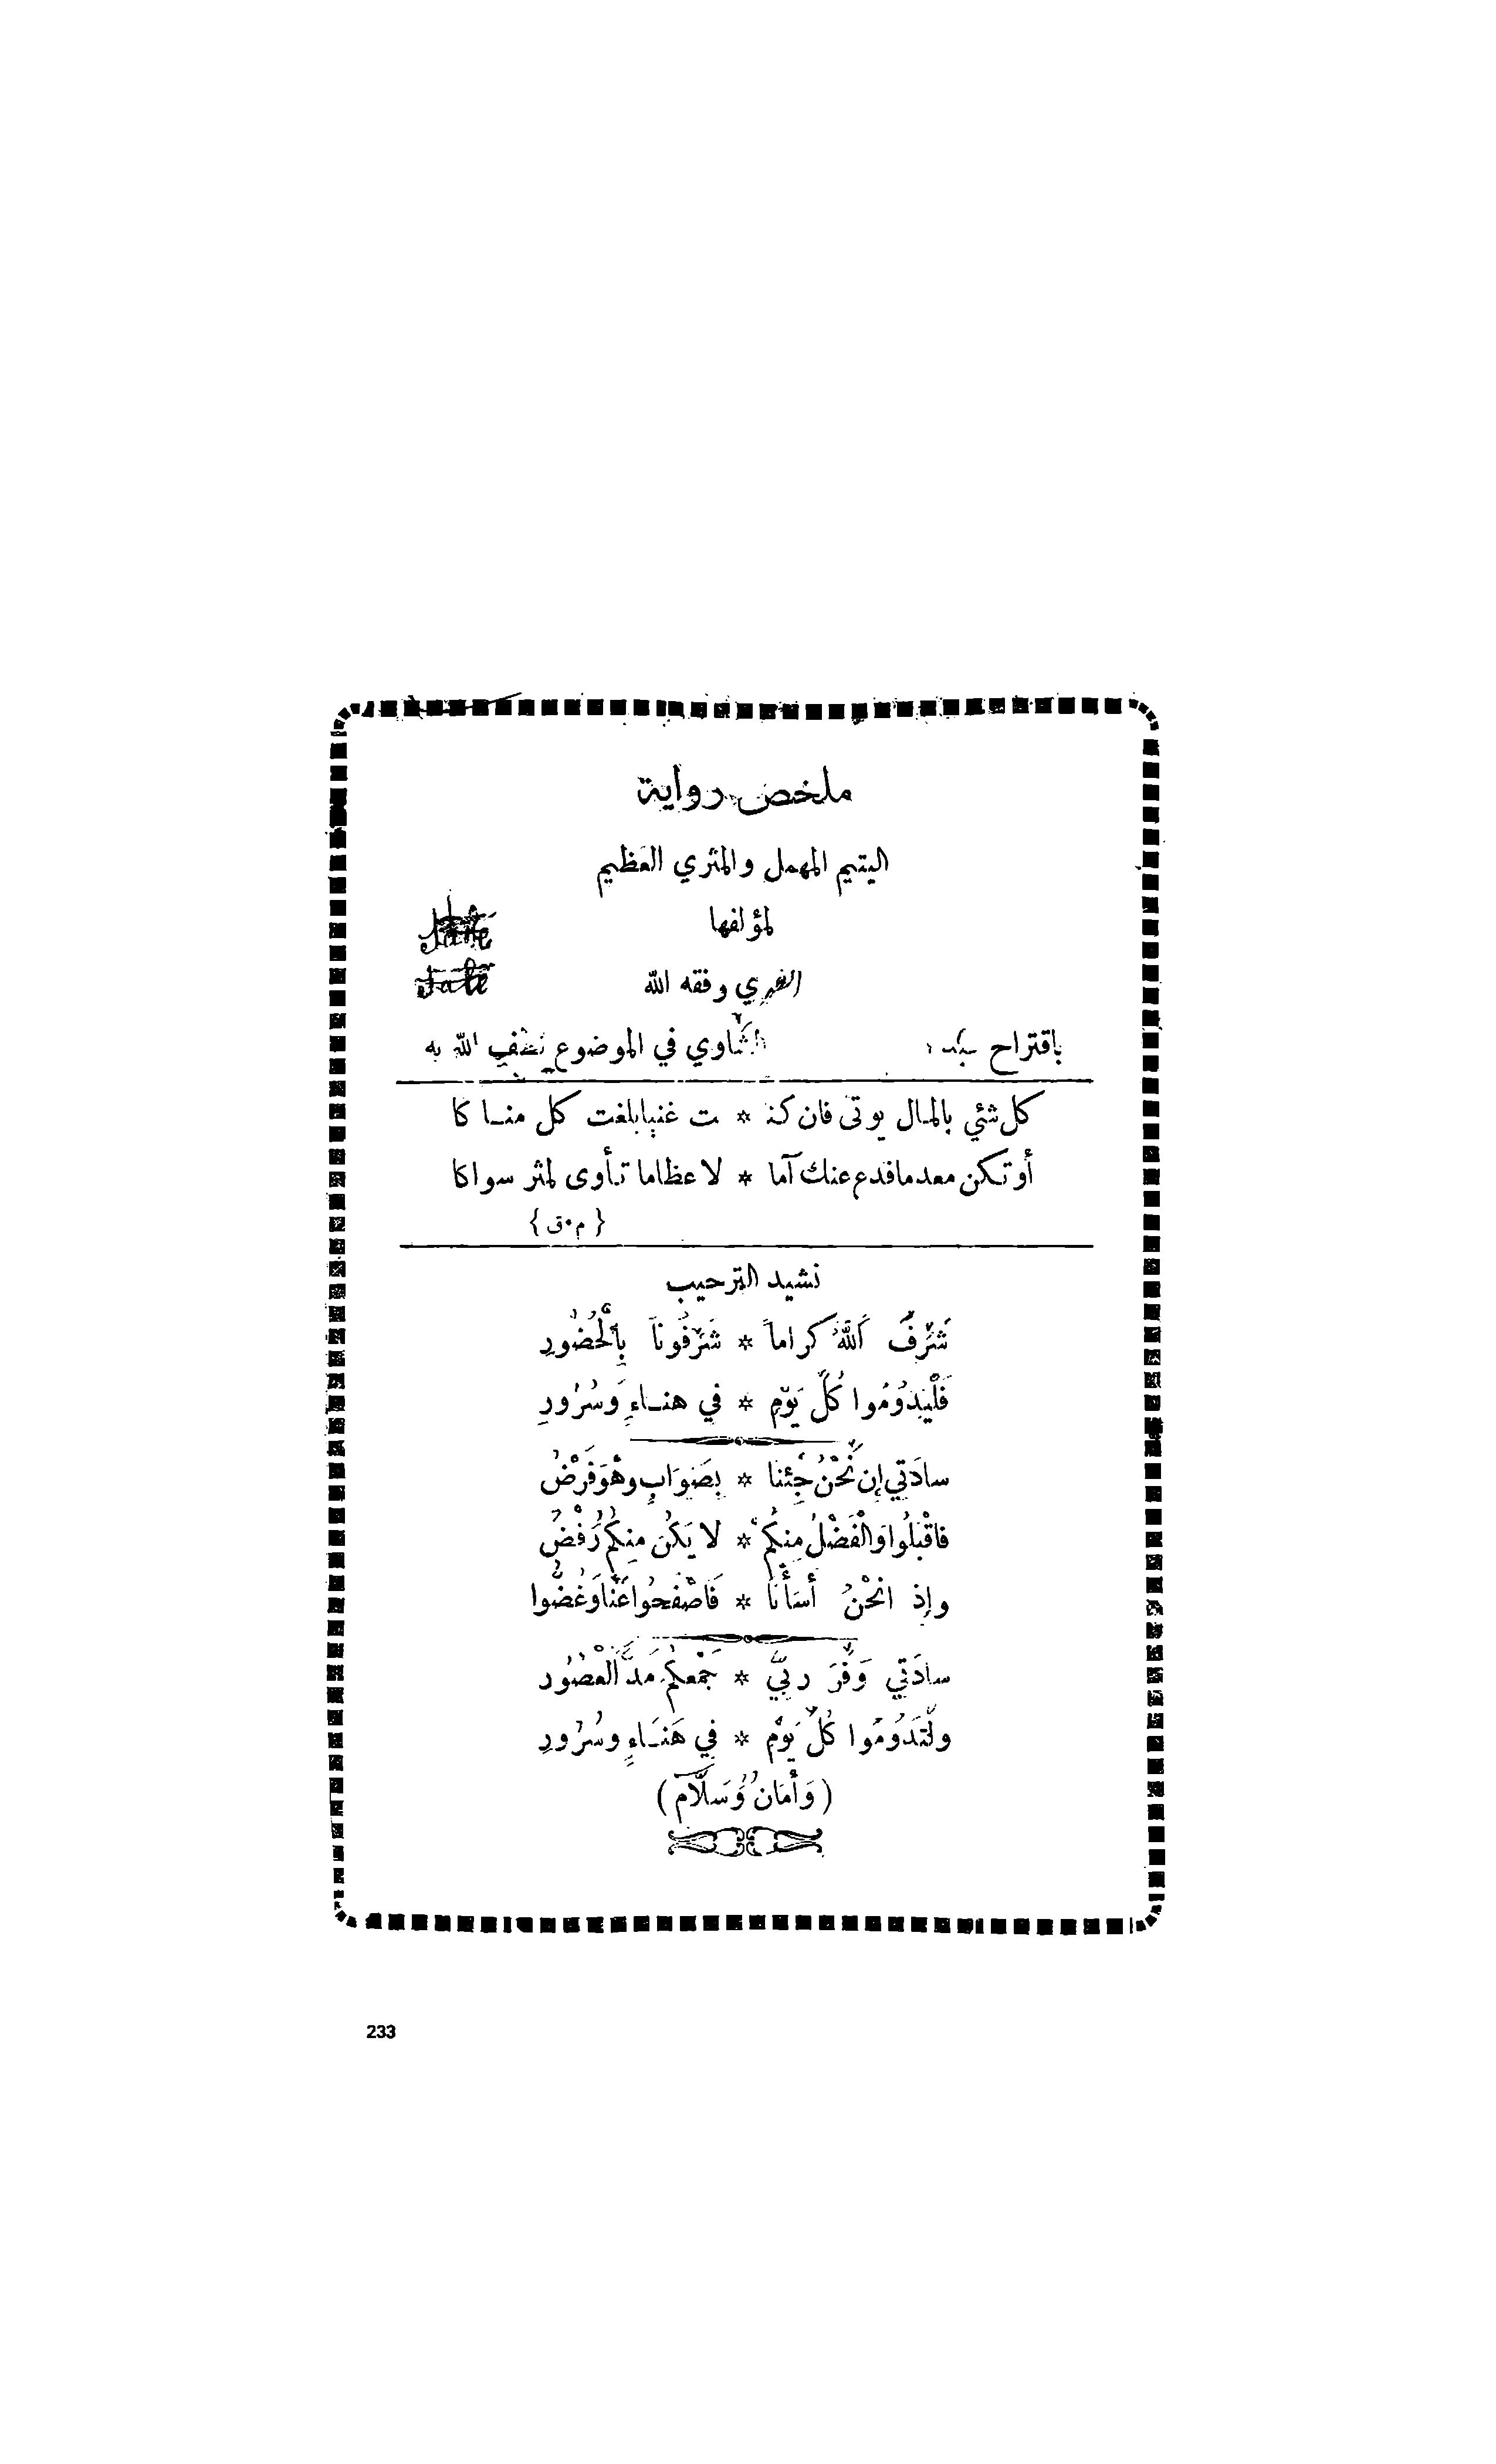 ملخص رواية
اليتيم المهمل والمثري العظيم
لمؤلفها
القري وفقه الله
باقتراح الشاوي في الموضوع لطف الله به
كل شئي بالمال يوتى فان كنـ * ـت غنيا بلغت كل منـاكا
أو تكن معدما فدع عنك آما * لا عظاما تأوى لمثر سواكا
{ م.ق }
نشيد الترحيب
شَرَّفَ اَللهُ كراماً * شَرَّفُوناَ بِاْلْحُضُورِ
فَلْيَدُومُوا كُلَّ يَوْمٍ * في هنـاءِ وَسُرُورِ
سادَتي إن نَّحْنُ جِئنا * بِصَوَابٍ وهْوَ فَرْضُ
فاقْبَلُوا وَالْفَضْلُ مِنكُمْ * لا يَكُنْ مِنكُمْ رَفْضُ
وإذ انحْنُ أَسَأْنَا * فَاصْفَحُوا عَنَّا وَغُضُّوا
سادَتي وَفَّرَ ربِّي * جَمْعكُمْ مَدَّ الْعُصُور
ولْتَدُومُوا كُلَّ يَوْمٍ * فِي هَنَـاءٍ وسُرُورِ
(وَأَمَان وَسَلاَم)
233